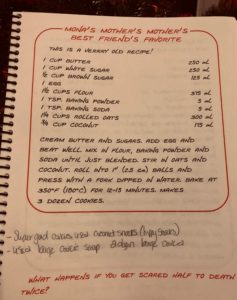 MONA'S MOTHER'S MOTHER'S
BEST FRIEND'S FAVORITE
THIS IS A VERRRY OLD RECIPE!
1 CUP BUTTER 250 mL
1 CUP WHITE SUGAR 250 mL
½ CUP BROWN SUGAR 125 mL
1 EGG
1½ CUPS FLOUR 375 mL
1 TSP. BAKING POWDER 5 mL
1 TSP. BAKING SODA 5 mL
1¼ CUPS ROLLED OATS 300 mL
¾ CUP COCONUT 175 mL
CREAM BUTTER AND SUGARS. ADD EGG AND
BEAT WELL. MIX IN FLOUR, BAKING POWDER AND
SODA UNTIL JUST BLENDED. STIR IN OATS AND
COCONUT. ROLL INTO 1" (2.5 cm) BALLS AND
PRESS WITH A FORK DIPPED IN WATER. BAKE AT
350°F (180°C) FOR 12-15 MINUTES. MAKES
3 DOZEN COOKIES.
- Super good cookies used coconut
- used large cookie scoop large cookies
WHAT HAPPENS IF YOU GET SCARED HALF TO DEATH
TWICE?